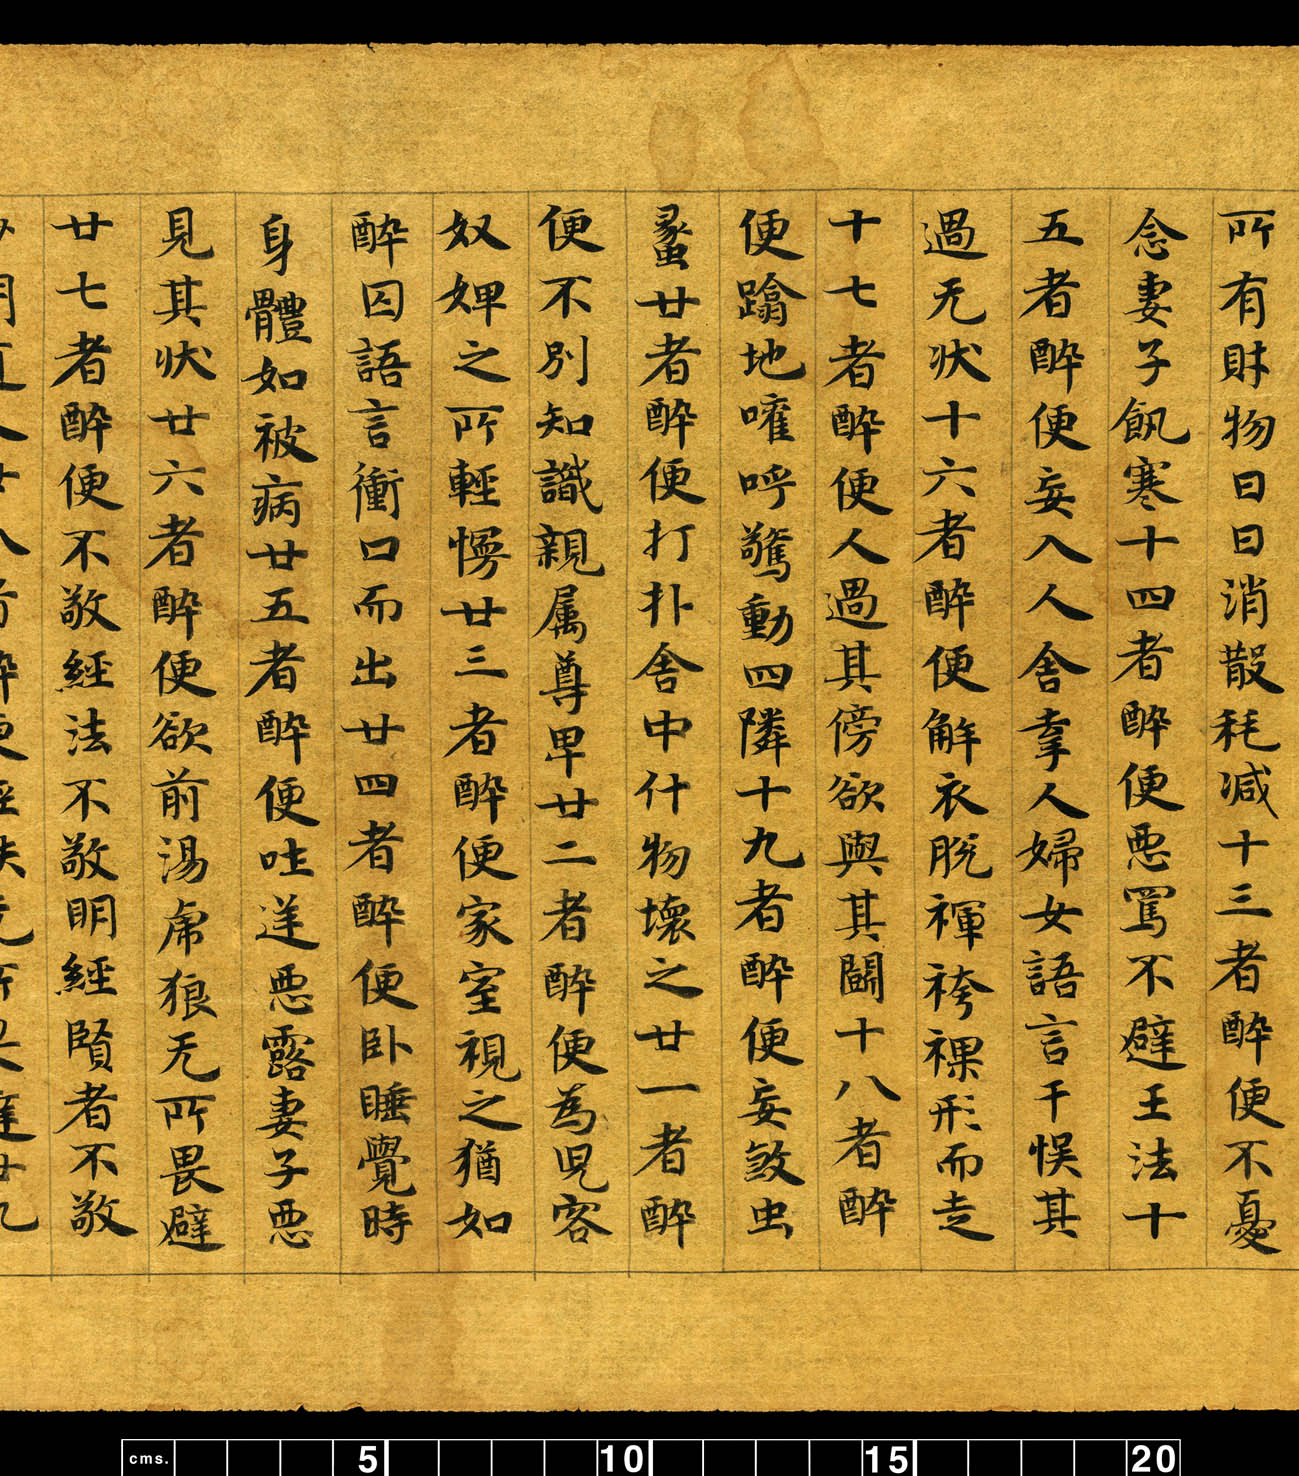 所有財物日日消散秏减十三者醉便不憂
念妻子飢寒十四者醉便惡罵不避王法十
五者醉便妄入人舍牽人婦女語言干悮其
過无狀十六者醉便解衣脫褌袴裸形而走
十七者醉便人過其傍欲與其鬪十八者醉
便蹹地嚾呼驚動四隣十九者醉便妄煞虫
蝨廿者醉便打扑舍中什物壞之廿一者醉
便不別知識親属尊卑廿二者醉便為兒客
奴婢之所輕慢廿三者醉便家室視之猶如
醉囚語言衝口而出廿四者醉便卧睡覺時
身體如被病廿五者醉便吐逆惡露妻子惡
見其狀廿六者醉便欲前湯虎狼无所畏避
廿七者醉便不敬經法不敬明經賢者不敬